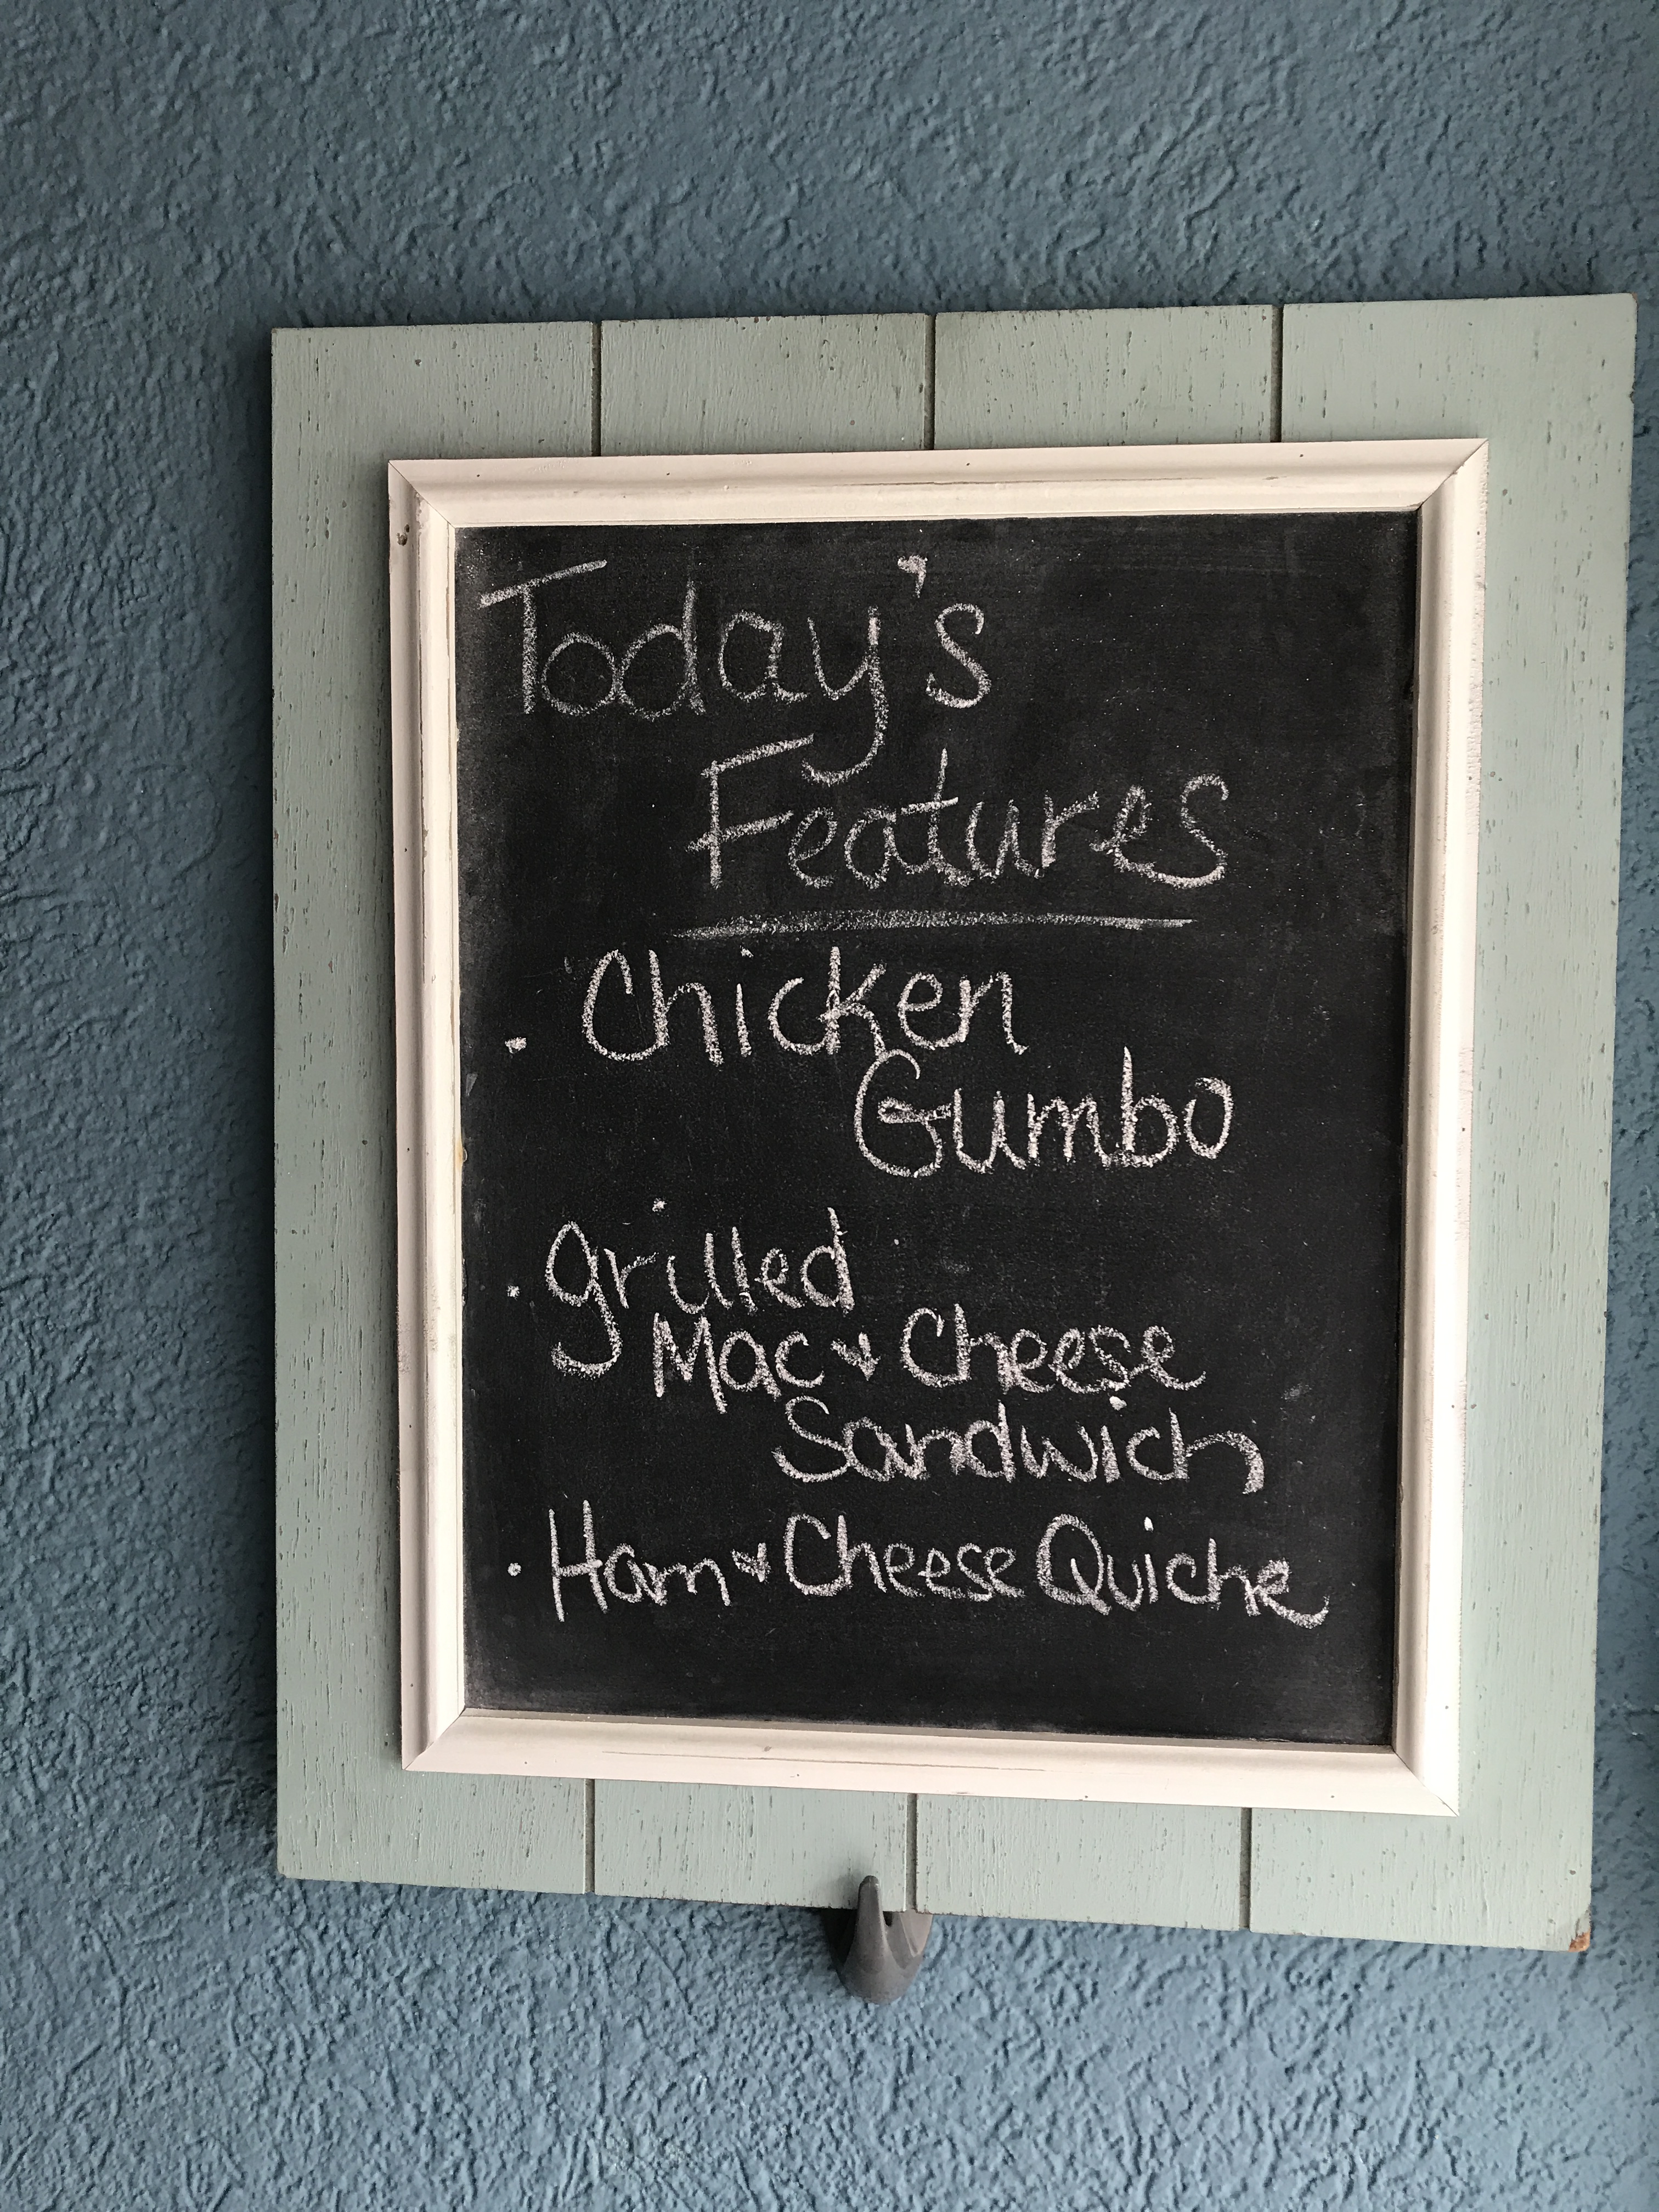 Today's
Features
. Chicken
Gumbo
. grilled
Mac & Cheese
Sandwich
. Ham & Cheese Quiche